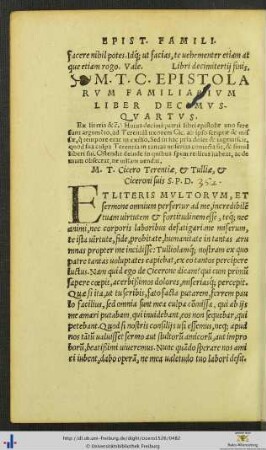 EPIST. FAMILI.
facere nihil potes. Idq; ut facias, te uehementer etiam at
que etiam rogo. Vale. Libri decimitertij finis.
M. T. C. EPISTOLA
RVM FAMILIARIVM
LIBER DECIMVS-
QVARTVS.
M. T. Cicero Terentiæ, & Tulliæ, &
Ciceroni suis S. P. D. 352.
ET LITERIS MVLTORVM, ET
sermone omnium perfertur ad me, incredibilē
tuam uirtutem & fortitudinem esse, teq; nec
animi, nec corporis laboribus defatigari. me miserum,
te ista uirtute, fide, probitate, humanitate in tantas æru
mnas propter me incidisse: Tulliolamq; nostram ex quo
patre tantas uoluptates capiebat, ex eo tantos percipere
luctus. Nam quid ego de Cicerone dicam? qui cum primū
sapere cœpit, acerbissimos dolores, miseriasq; percepit.
Quæ si ita, ut tu scribis, fato facta putarem, ferrem pau
lo facilius, sed omnia sunt mea culpa cōmissa, qui ab ijs
me amari putabam, qui inuidebant, eos non sequebar, qui
petebant. Quod si nostris consilijs usi essemus, neq; apud
nos tātū ualuisset sermo aut stultorū amicorū, aut impro
borū, beatissimi uiueremus. Nunc quādo sperare nos ami
ci iubent, dabo operā, ne mea ualetudo tuo labori desit.
http://dl.ub.uni-freiburg.de/diglit/cicero1526/0482
© Universitätsbibliothek Freiburg